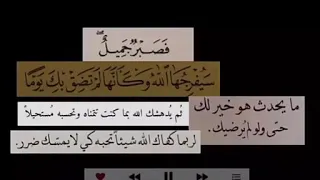 فَصَبْرٌ جَمِيلٌ
سَيُفَرِّجُهَا اللّٰهُ وَكَأَنَّهَا لَمْ تَضِقْ بِكَ يَوْمًا
ما يحدث هو خير لك
حتى ولو لم يُرضيك.
ثم يُدهشك الله بما كنت تتمناه وتحسبه مستحيلاً
لربما كفاك الله شيئاً تحبه كي لا يمسّك ضرر.